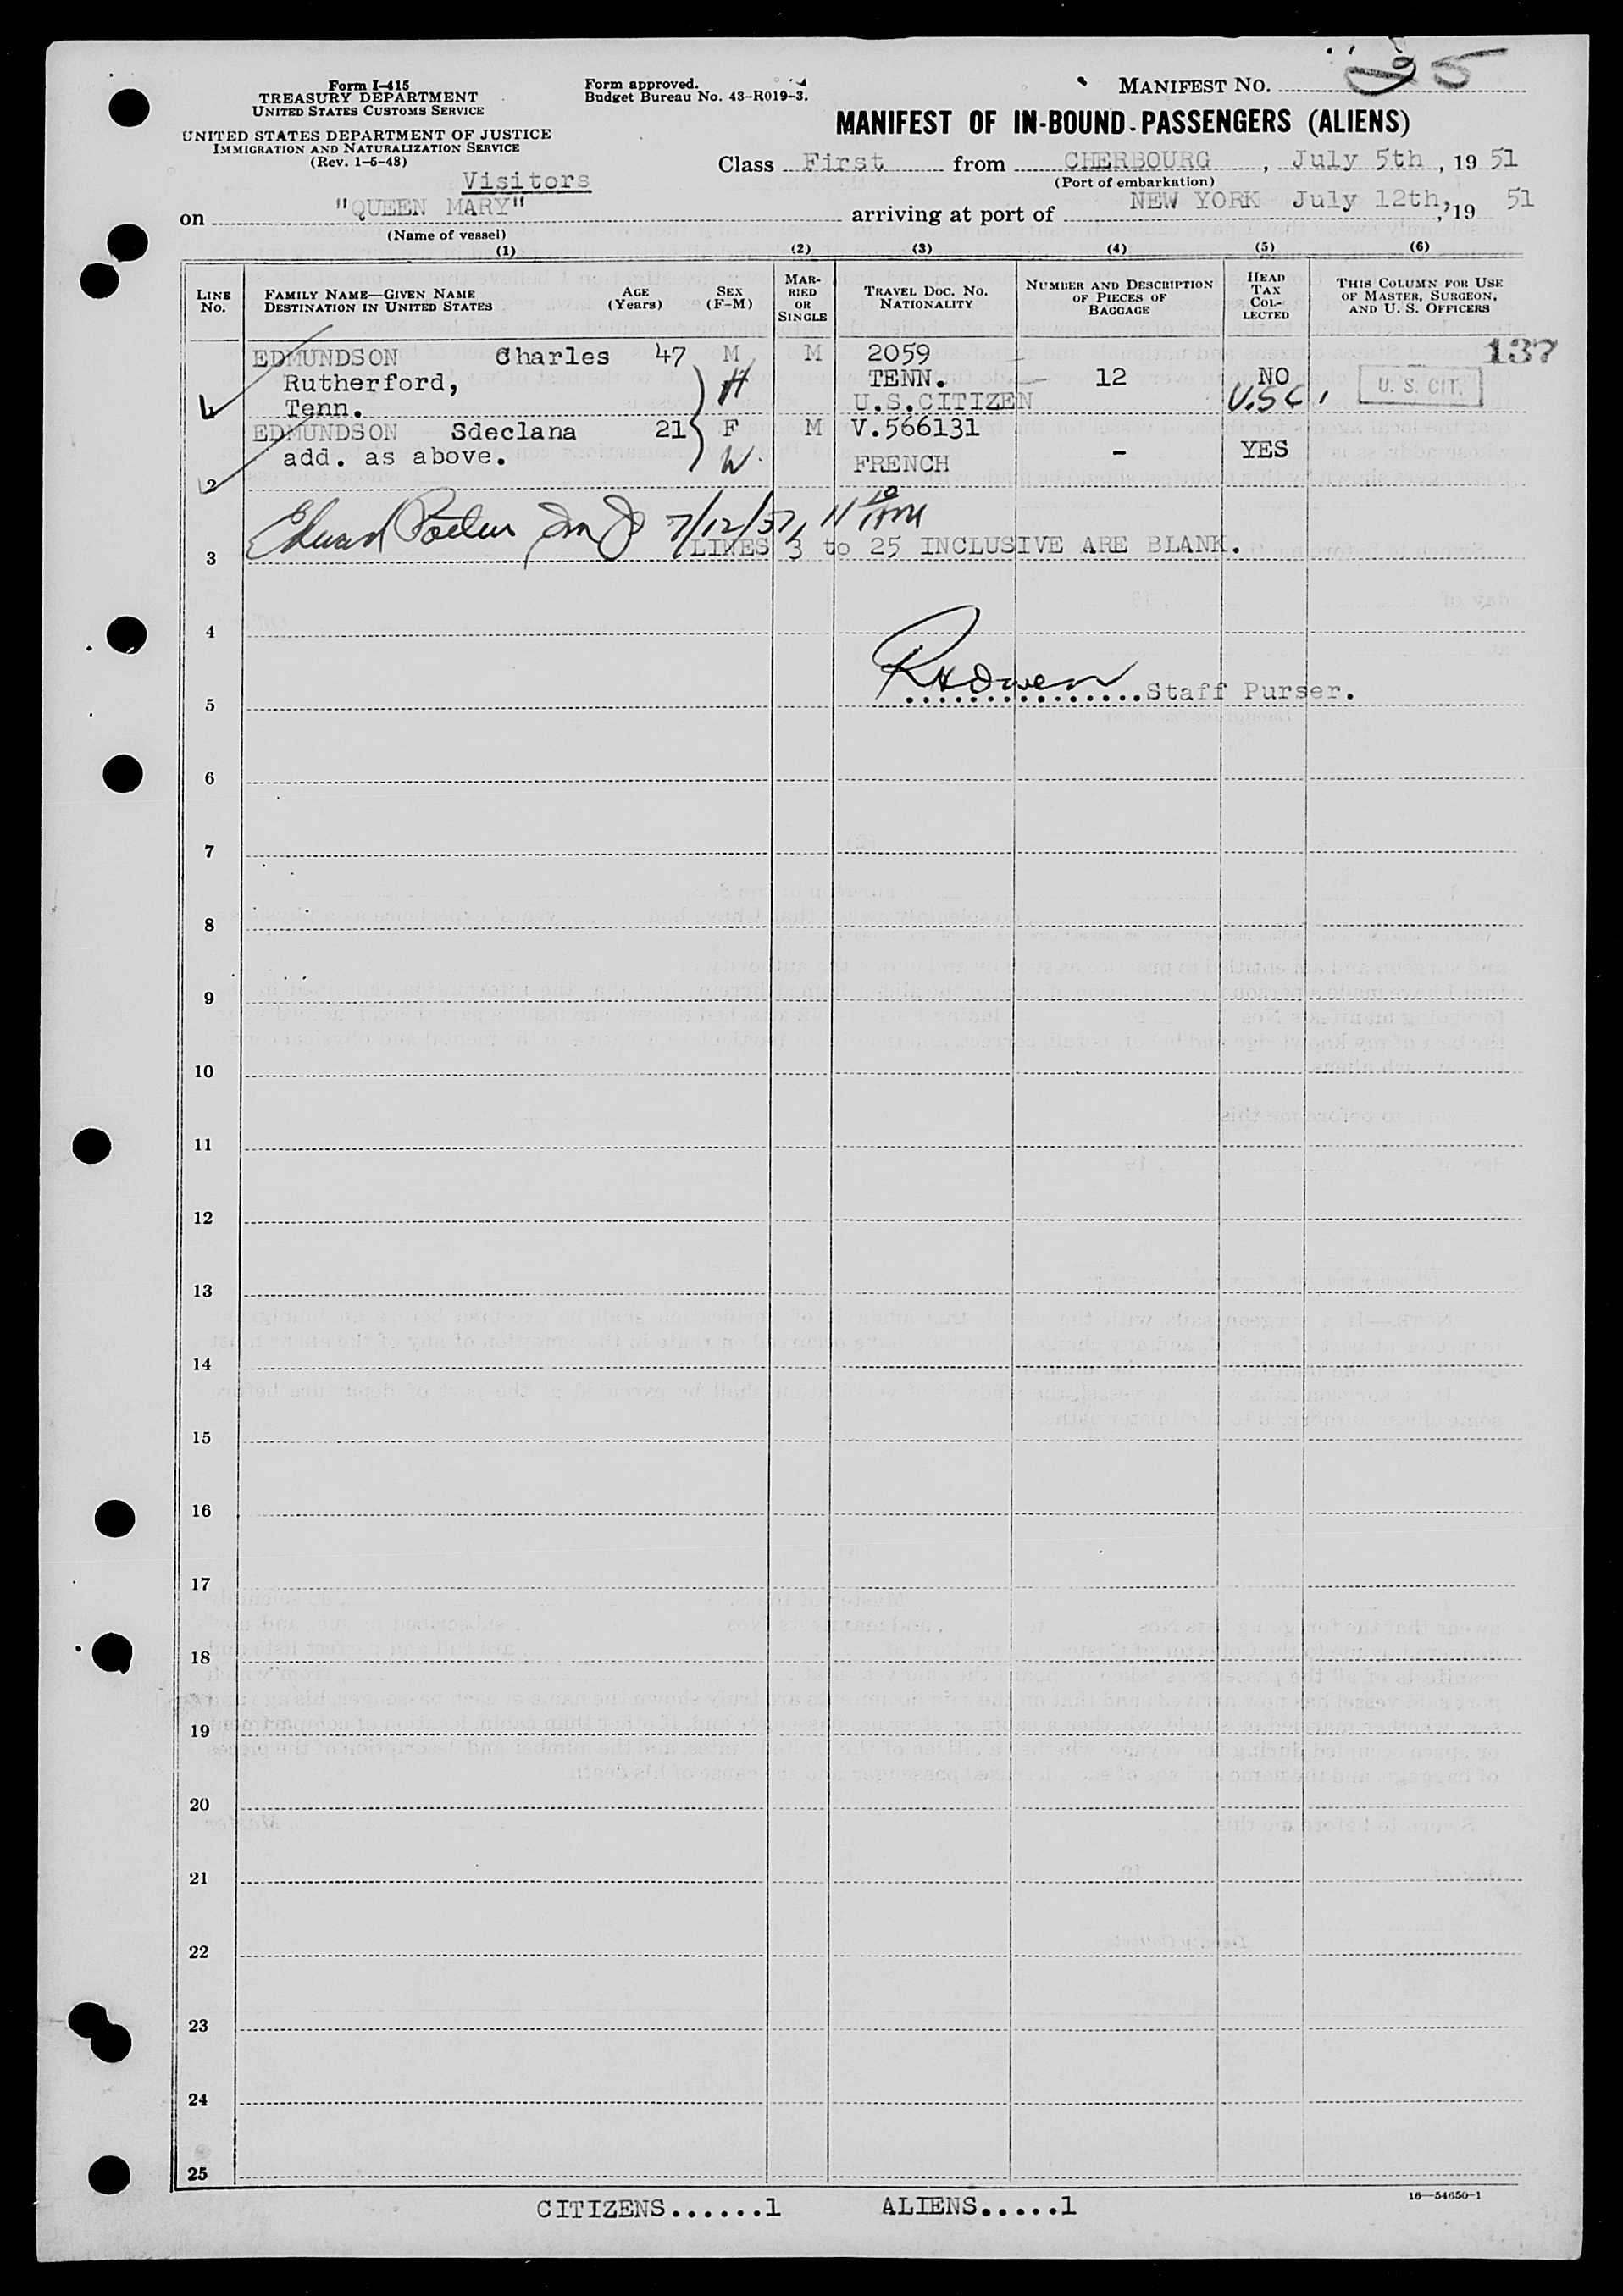 Form I-415
TREASURY DEPARTMENT
UNITED STATES CUSTOMS SERVICE
UNITED STATES DEPARTMENT OF JUSTICE
IMMIGRATION AND NATURALIZATION SERVICE
(Rev. 1-5-48)
Form approved.
Budget Bureau No. 43-R019-3.
MANIFEST NO. 5
MANIFEST OF IN-BOUND PASSENGERS (ALIENS)
Class First from CHERBOURG, July 5th, 19 51
(Port of embarkation)
Visitors
on "QUEEN MARY" arriving at port of NEW YORK July 12th, 19 51
(Name of vessel)
(1) (2) (3) (4) (5) (6)
LINE No. FAMILY NAME—GIVEN NAME DESTINATION IN UNITED STATES AGE (Years) SEX (F-M) MARRIED OR SINGLE TRAVEL DOC. NO. NATIONALITY NUMBER AND DESCRIPTION OF PIECES OF BAGGAGE HEAD TAX COLLECTED THIS COLUMN FOR USE OF MASTER, SURGEON, AND U. S. OFFICERS
137
EDMUNDSON Charles 47 M M 2059
Rutherford, H TENN. 12 NO U. S. CIT.
Tenn. U.S.CITIZEN U.S.C.
EDMUNDSON Sdeclana 21 F M V.566131
add. as above. W. FRENCH - YES
2
Edward 7/12/
3 LINES 3 to 25 INCLUSIVE ARE BLANK.
4
RHOwen
5 Staff Purser.
6
7
8
9
10
11
12
13
14
15
16
17
18
19
20
21
22
23
24
25
CITIZENS......1 ALIENS.....1
16—54650-1